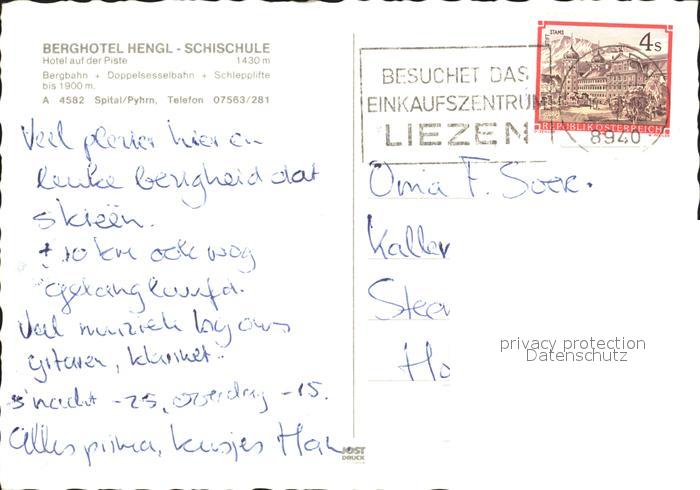 BERGHOTEL HENGL - SCHISCHULE
Hotel auf der Piste 1430 m
Bergbahn + Doppelsesselbahn + Schlepplifte
bis 1900 m.
A 4582 Spital/Pyhrn, Telefon 07563/281
Veel plezier hier en
leuke bezigheid dat
skieën.
± 10 km ook nog
gelanglaufd.
Veel muziek bij ons
gitaren, klarinet.
's nachts -25, overdag -15.
Alles prima, kusjes Han
JOST
DRUCK
STAMS
4 S
REPUBLIK ÖSTERREICH
BESUCHET DAS
EINKAUFSZENTRUM
LIEZEN
8940
Oma F.
privacy protection
Datenschutz